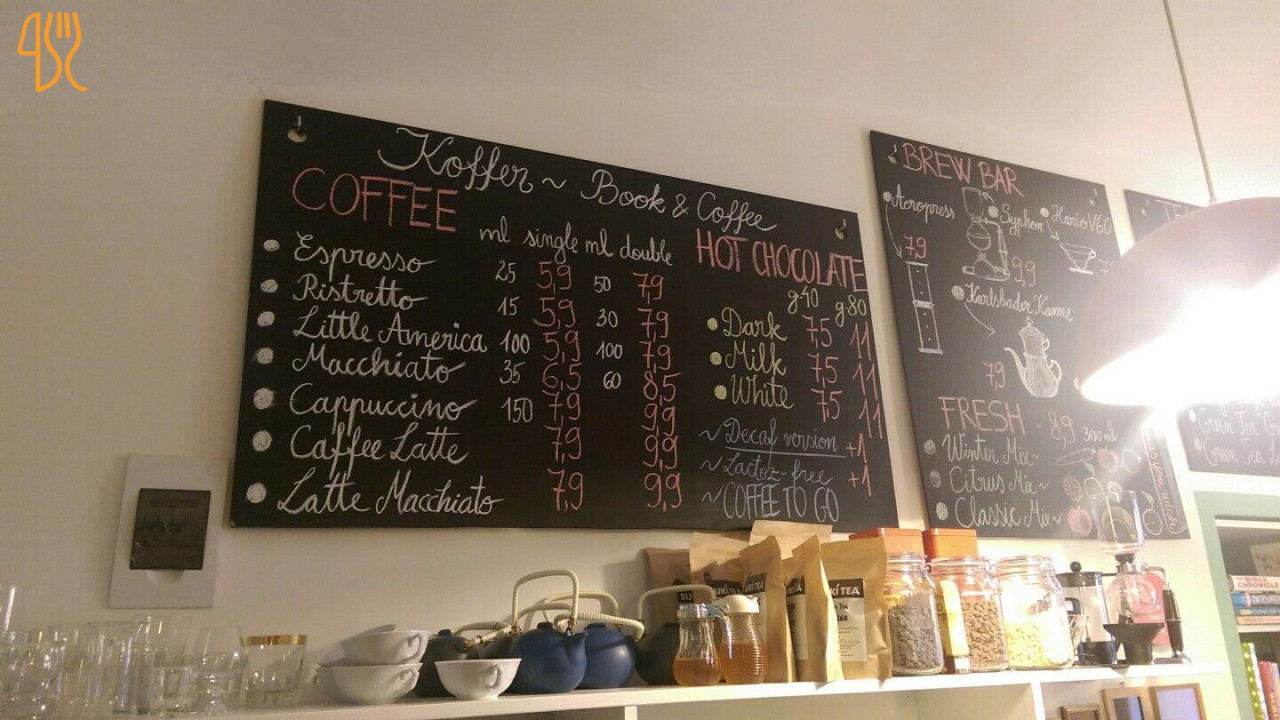 Koffer ~ Book & Coffee
COFFEE
ml single ml double
Espresso 25 5,9 50 7,9
Ristretto 15 5,9 30 7,9
Little America 100 5,9 100 7,9
Macchiato 35 6,5 60 8,5
Cappuccino 150 7,9 9,9
Caffee Latte 7,9 9,9
Latte Macchiato 7,9 9,9
HOT CHOCOLATE
g-40 g-80
Dark 7,5 11
Milk 7,5 11
White 7,5 11
~ Decaf version +1
~ Lactoz-free +1
~ COFFEE TO GO
BREW BAR
Aeropress
7,9
Syphon
9,9
Hario V60
Karlsbader Kanne
7,9
FRESH - 8,9 300ml
Winter Mix~
Citrus Mix~
Classic Mix~
Green Tea
SUKI TEA
UKI TEA